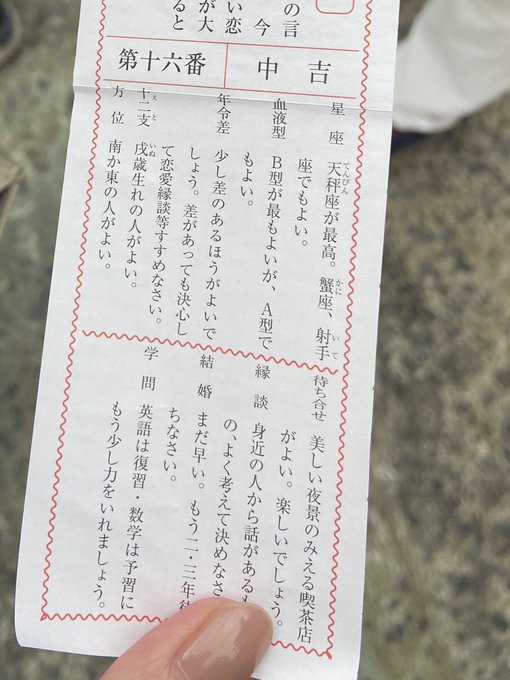 の言
今
い恋
が大
ると
第十六番 中吉
てんびん かに いて
星座 天秤座が最高。蟹座、射手
座でもよい。
血液型 B型が最もよいが、A型で
もよい。
年令差 少し差のあるほうがよいで
しょう。差があっても決心し
て恋愛縁談等すすめなさい。
えと いぬ
十二支 戌歳生れの人がよい。
方位 南か東の人がよい。
待ち合せ 美しい夜景のみえる喫茶店
がよい。楽しいでしょう。
縁談 身近の人から話があるも
の、よく考えて決めなさ
結婚 まだ早い。もう二・三年待
ちなさい。
学問 英語は復習・数学は予習に
もう少し力をいれましょう。